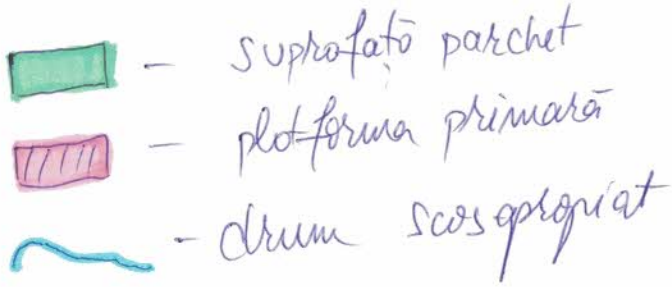 - suprafață parchet
- platforma primară
- drum scosapropiat